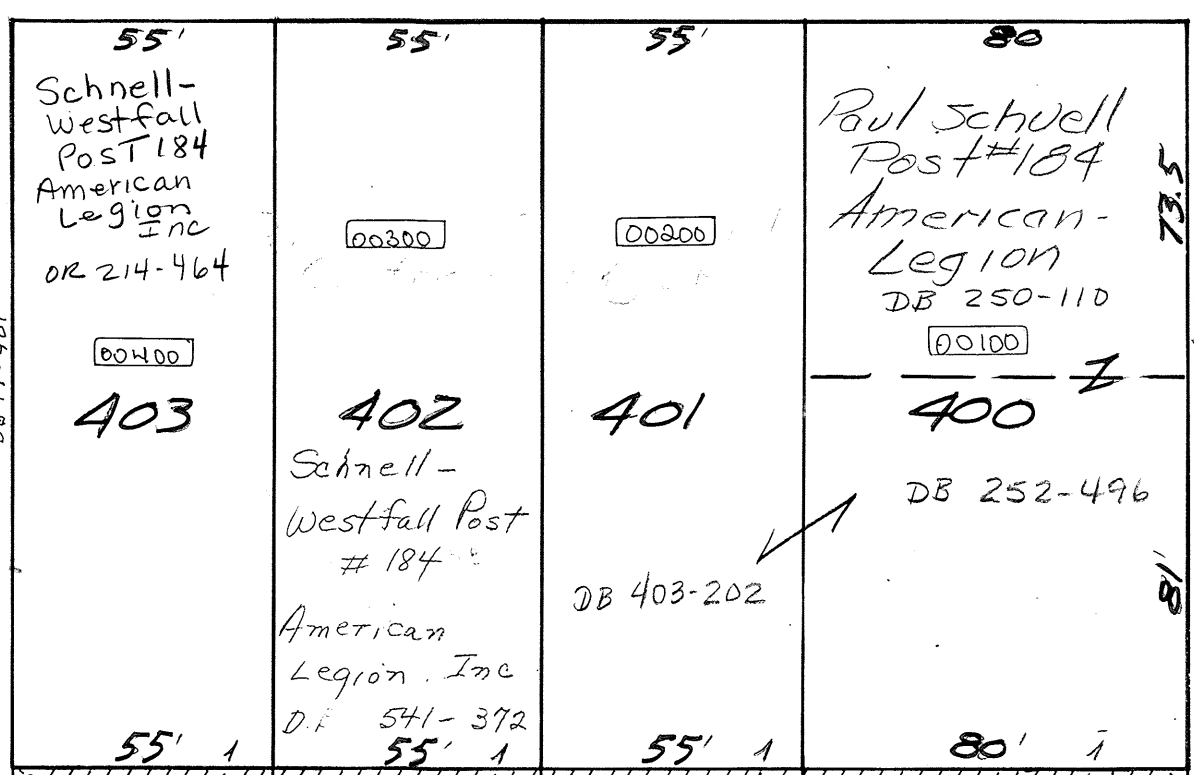 55'
Schnell-
Westfall
POST 184
American
Legion
Inc
OR 214-464
00400
403
55' 1
55'
00300
402
Schnell-
Westfall Post
# 184
American
Legion. Inc
541-372
55' 1
55'
00200
401
DB 403-202
55' 1
80
Paul Schnell
Post #184
American-
Legion
DB 250-110
73.5
00100
400
DB 252-496
81'
80' 1